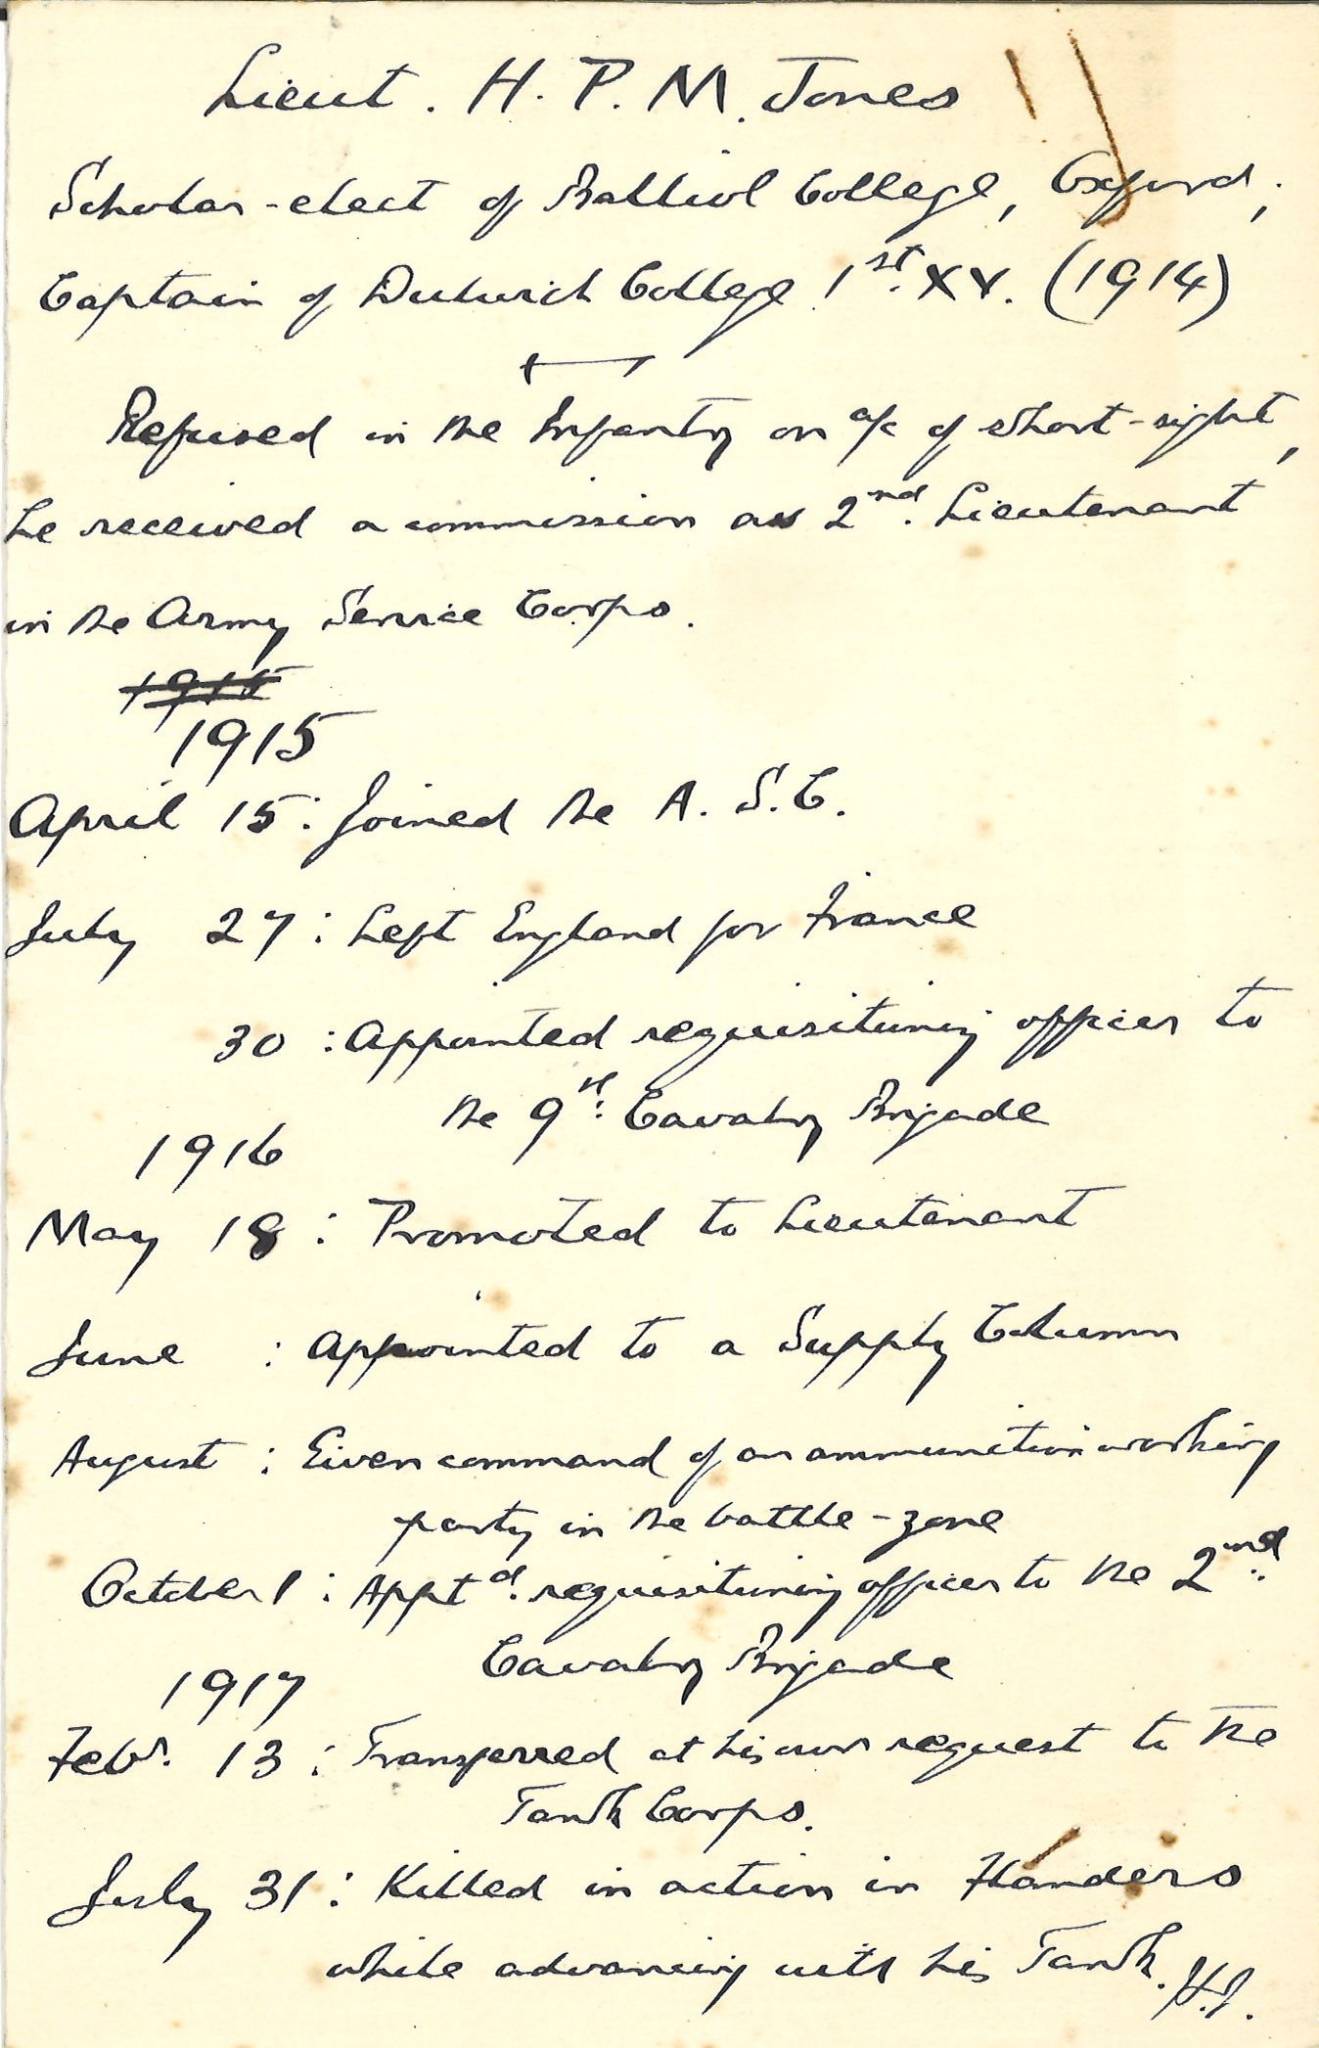 Lieut. H. P. M. Jones
Scholar-elect of Balliol College, Oxford;
Captain of Dulwich College 1st. XV. (1914)
Refused in the Infantry on a/c of short-sight,
he received a commission as 2nd. Lieutenant
in the Army Service Corps.
1915
1915
April 15: Joined the A. S. C.
July 27: Left England for France
30: Appointed requisitioning officer to
the 9th. Cavalry Brigade
1916
May 18: Promoted to Lieutenant
June : Appointed to a Supply Column
August : Given command of an ammunition working
party in the battle-zone
October 1: Apptd. requisitioning officer to the 2nd.
Cavalry Brigade
1917
Feby. 13: Transferred at his own request to the
Tank Corps.
July 31: Killed in action in Flanders
while advancing with his Tank. H.J.